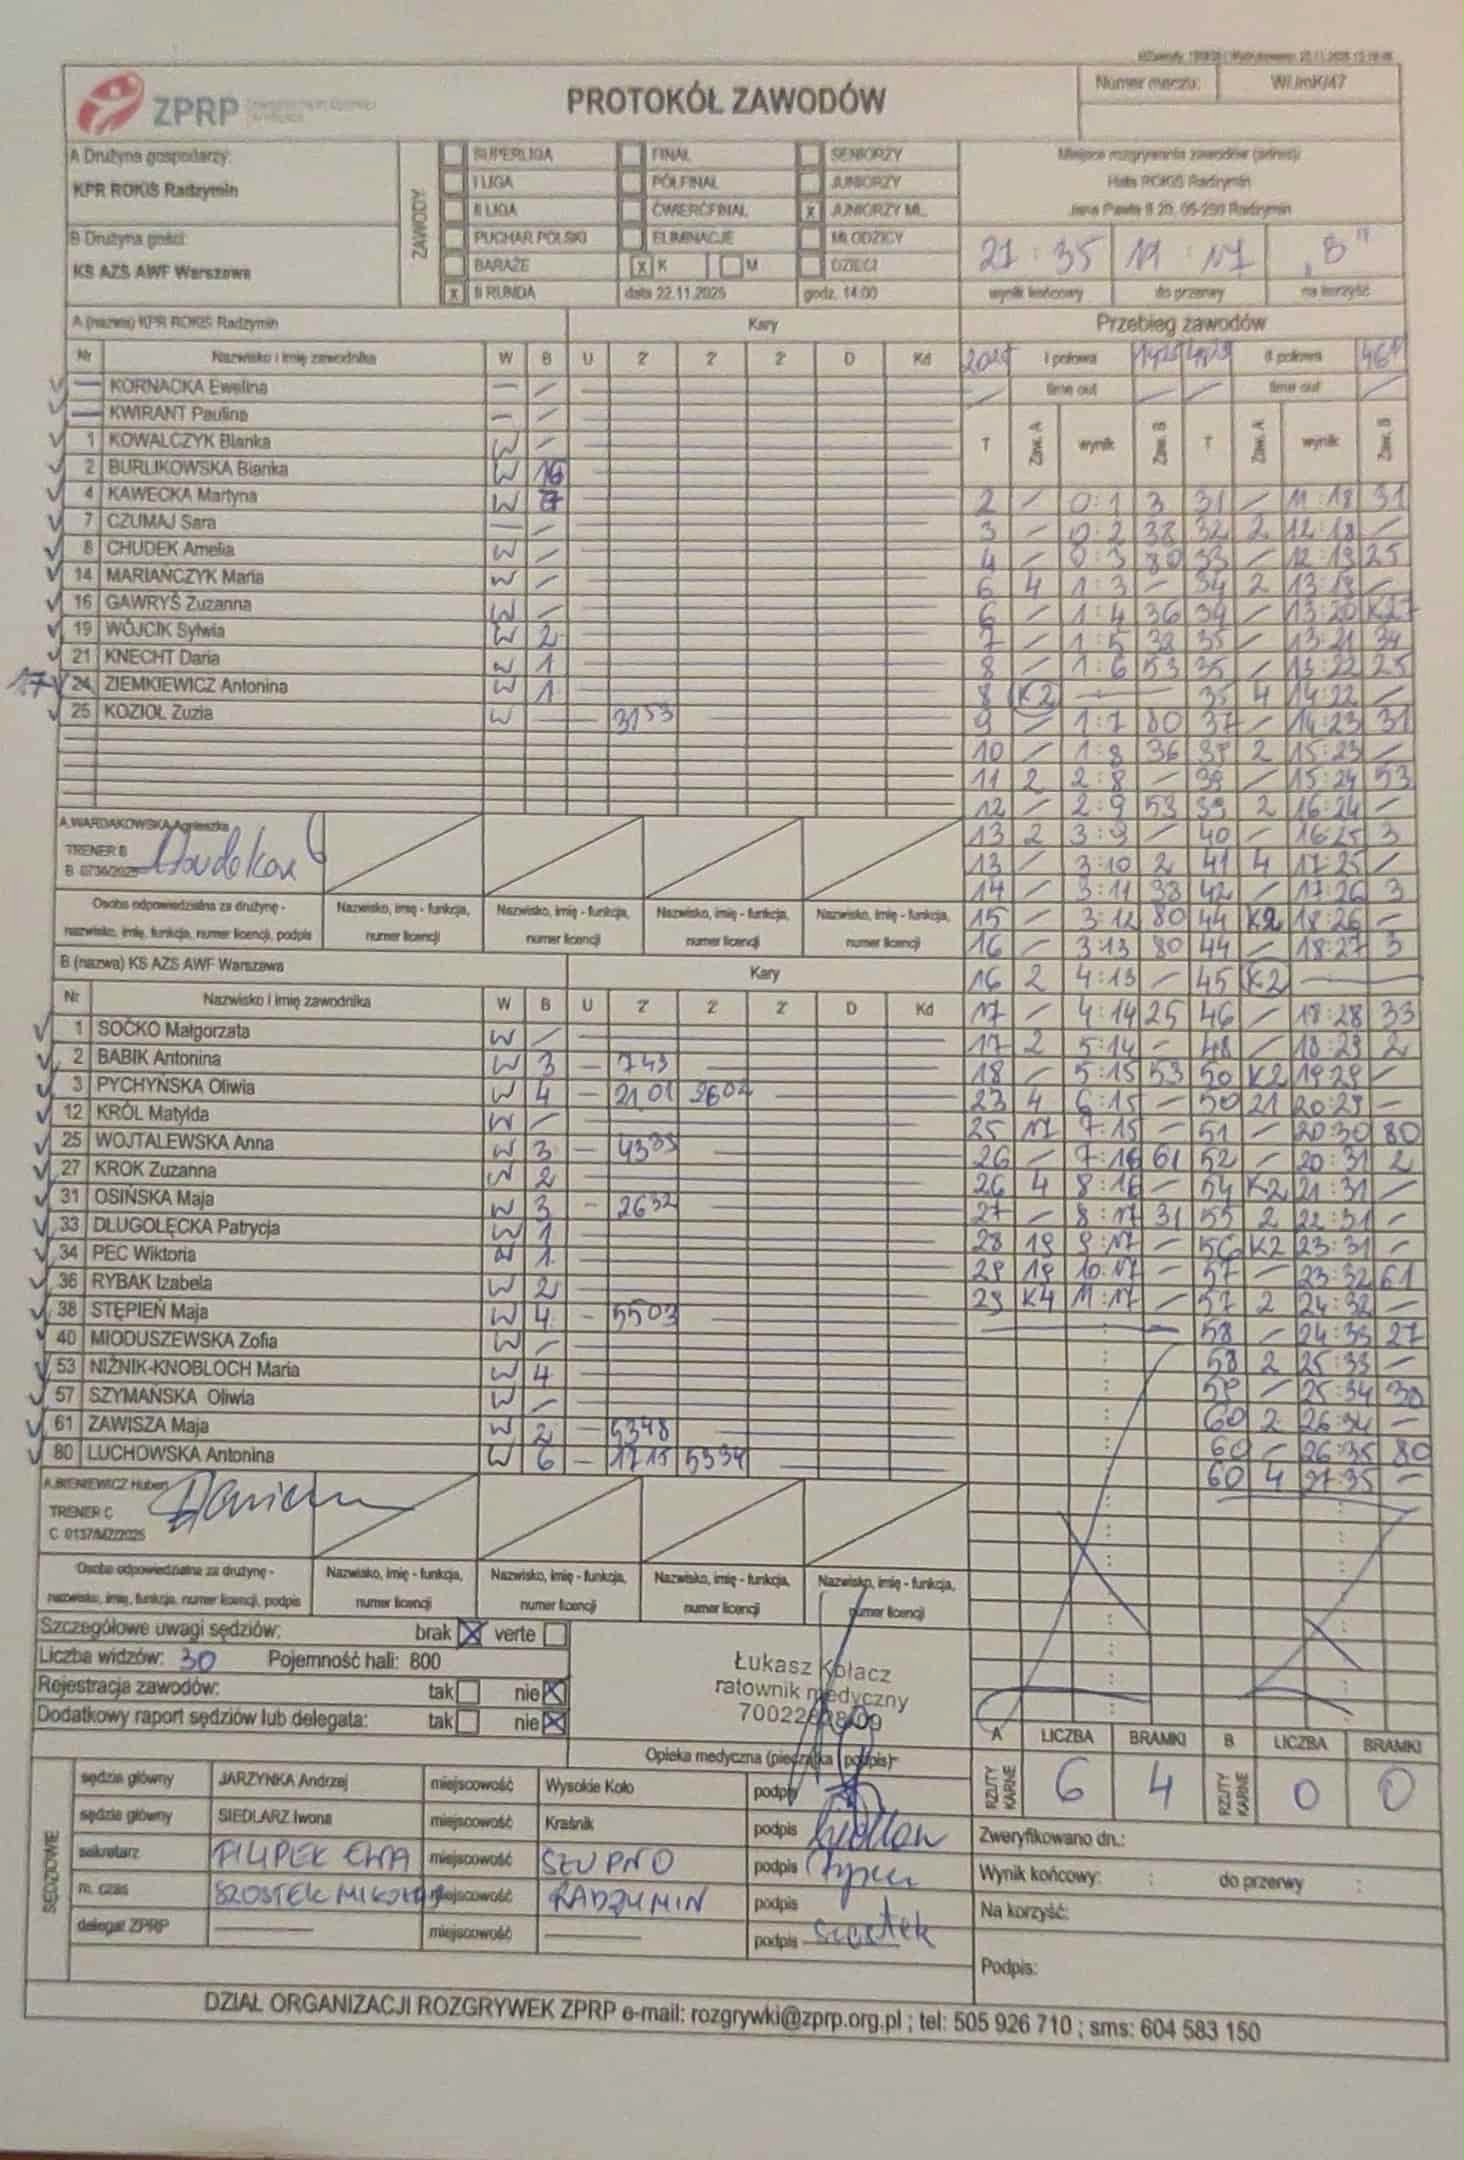 ZPRP
PROTOKÓŁ ZAWODÓW
Numer meczu: WJmK/47
A Drużyna gospodarzy:
KPR ROKIS Radzymin
B Drużyna gości:
KS AZS AWF Warszawa
ZAWODY
SUPERLIGA FINAŁ SENIORZY
I LIGA PÓŁFINAŁ JUNIORZY
II LIGA ĆWIERĆFINAŁ x JUNIORZY MŁ.
PUCHAR POLSKI ELIMINACJE MŁODZICY
BARAŻE x K M DZIECI
x II RUNDA data 22.11.2025 godz. 14:00
Miejsce rozgrywania zawodów (adres):
Hala ROKIS Radzymin
Jana Pawła II 20, 05-250 Radzymin
21:35 11:17 „B"
wynik końcowy do przerwy na korzyść
A (nazwa) KPR ROKIS Radzymin Kary
Nr Nazwisko i imię zawodnika W B U 2' 2' 2' D Kd
— KORNACKA Ewelina — /
— KWIRANT Paulina — /
1 KOWALCZYK Blanka W /
2 BURLIKOWSKA Bianka W 16
4 KAWECKA Martyna W
7 CZUMAJ Sara — /
8 CHUDEK Amelia W /
14 MARIAŃCZYK Maria W /
16 GAWRYŚ Zuzanna W /
19 WÓJCIK Sylwia W 2
21 KNECHT Daria W 1
17 24 ZIEMKIEWICZ Antonina W 1
25 KOZIOŁ Zuzia W — 3153
A.WARDAKOWSKA Agnieszka
TRENER B
B 0736/2025
Osoba odpowiedzialna za drużynę -
nazwisko, imię, funkcja, numer licencji, podpis
Nazwisko, imię - funkcja, numer licencji
Nazwisko, imię - funkcja, numer licencji
Nazwisko, imię - funkcja, numer licencji
Nazwisko, imię - funkcja, numer licencji
B (nazwa) KS AZS AWF Warszawa Kary
Nr Nazwisko i imię zawodnika W B U 2' 2' 2' D Kd
1 SOĆKO Małgorzata W /
2 BABIK Antonina W 3 - 743
3 PYCHYŃSKA Oliwia W 4 - 2101 2604
12 KRÓL Matylda W /
25 WOJTALEWSKA Anna W 3 - 4335
27 KROK Zuzanna W 2
31 OSIŃSKA Maja W 3 - 2632
33 DŁUGOŁĘCKA Patrycja W 1
34 PEC Wiktoria W 1
36 RYBAK Izabela W 2
38 STĘPIEŃ Maja W 4 - 5503
40 MIODUSZEWSKA Zofia W /
53 NIŻNIK-KNOBLOCH Maria W 4
57 SZYMAŃSKA Oliwia W /
61 ZAWISZA Maja W 2 - 5348
80 LUCHOWSKA Antonina W 6 - 1715 5334
A.BIENIEWICZ Hubert
TRENER C
C 0137/MZ/2025
Osoba odpowiedzialna za drużynę -
nazwisko, imię, funkcja, numer licencji, podpis
Nazwisko, imię - funkcja, numer licencji
Nazwisko, imię - funkcja, numer licencji
Nazwisko, imię - funkcja, numer licencji
Nazwisko, imię - funkcja, numer licencji
Przebieg zawodów
I połowa II połowa
time out time out
T Zaw. A wynik Zaw. B T Zaw. A wynik Zaw. B
2 / 0:1 3 31 / 11:18 31
3 / 0:2 38 32 2 12:18 /
4 / 0:3 80 33 / 12:19 25
6 4 1:3 - 34 2 13:19 /
6 / 1:4 36 34 / 13:20 K27
7 / 1:5 38 35 / 13:21 34
8 / 1:6 53 35 / 13:22 25
8 K2 — 35 4 14:22 /
9 / 1:7 80 37 / 14:23 31
10 / 1:8 36 38 2 15:23 /
11 2 2:8 - 39 / 15:24 53
12 / 2:9 53 39 2 16:24 -
13 2 3:9 - 40 / 16:25 3
13 / 3:10 2 41 4 17:25 /
14 / 3:11 38 42 / 17:26 3
15 / 3:12 80 44 K2 18:26 -
16 / 3:13 80 44 / 18:27 3
16 2 4:13 - 45 K2 —
17 / 4:14 25 46 / 18:28 33
17 2 5:14 - 48 / 18:29 2
18 / 5:15 53 50 K2 19:29 -
23 4 6:15 - 50 21 20:29 -
25 17 7:15 - 51 / 20:30 80
26 / 7:16 61 52 / 20:31 2
26 4 8:16 - 54 K2 21:31 /
27 / 8:17 31 55 2 22:31 -
28 19 9:17 - 56 K2 23:31 -
29 19 10:17 - 57 / 23:32 61
29 K4 11:17 - 57 2 24:32 -
58 / 24:33 27
58 2 25:33 -
59 / 25:34 38
60 2 26:34 -
60 / 26:35 80
60 4 27:35 -
Szczegółowe uwagi sędziów: brak x verte
Liczba widzów: 30 Pojemność hali: 800
Rejestracja zawodów: tak nie x
Dodatkowy raport sędziów lub delegata: tak nie x
Łukasz Kołacz
ratownik medyczny
Opieka medyczna (pieczątka i podpis)
A LICZBA BRAMKI B LICZBA BRAMKI
RZUTY KARNE 6 4 RZUTY KARNE 0 0
SĘDZIOWIE
sędzia główny JARZYNKA Andrzej miejscowość Wysokie Koło podpis
sędzia główny SIEDLARZ Iwona miejscowość Kraśnik podpis
sekretarz FILIPEK EWA miejscowość SŁUPNO podpis
m. czas SZOSTEK MIKOŁAJ miejscowość RADZYMIN podpis
delegat ZPRP — miejscowość — podpis Szostek
Zweryfikowano dn.:
Wynik końcowy: : do przerwy :
Na korzyść:
Podpis:
DZIAŁ ORGANIZACJI ROZGRYWEK ZPRP e-mail: rozgrywki@zprp.org.pl ; tel: 505 926 710 ; sms: 604 583 150